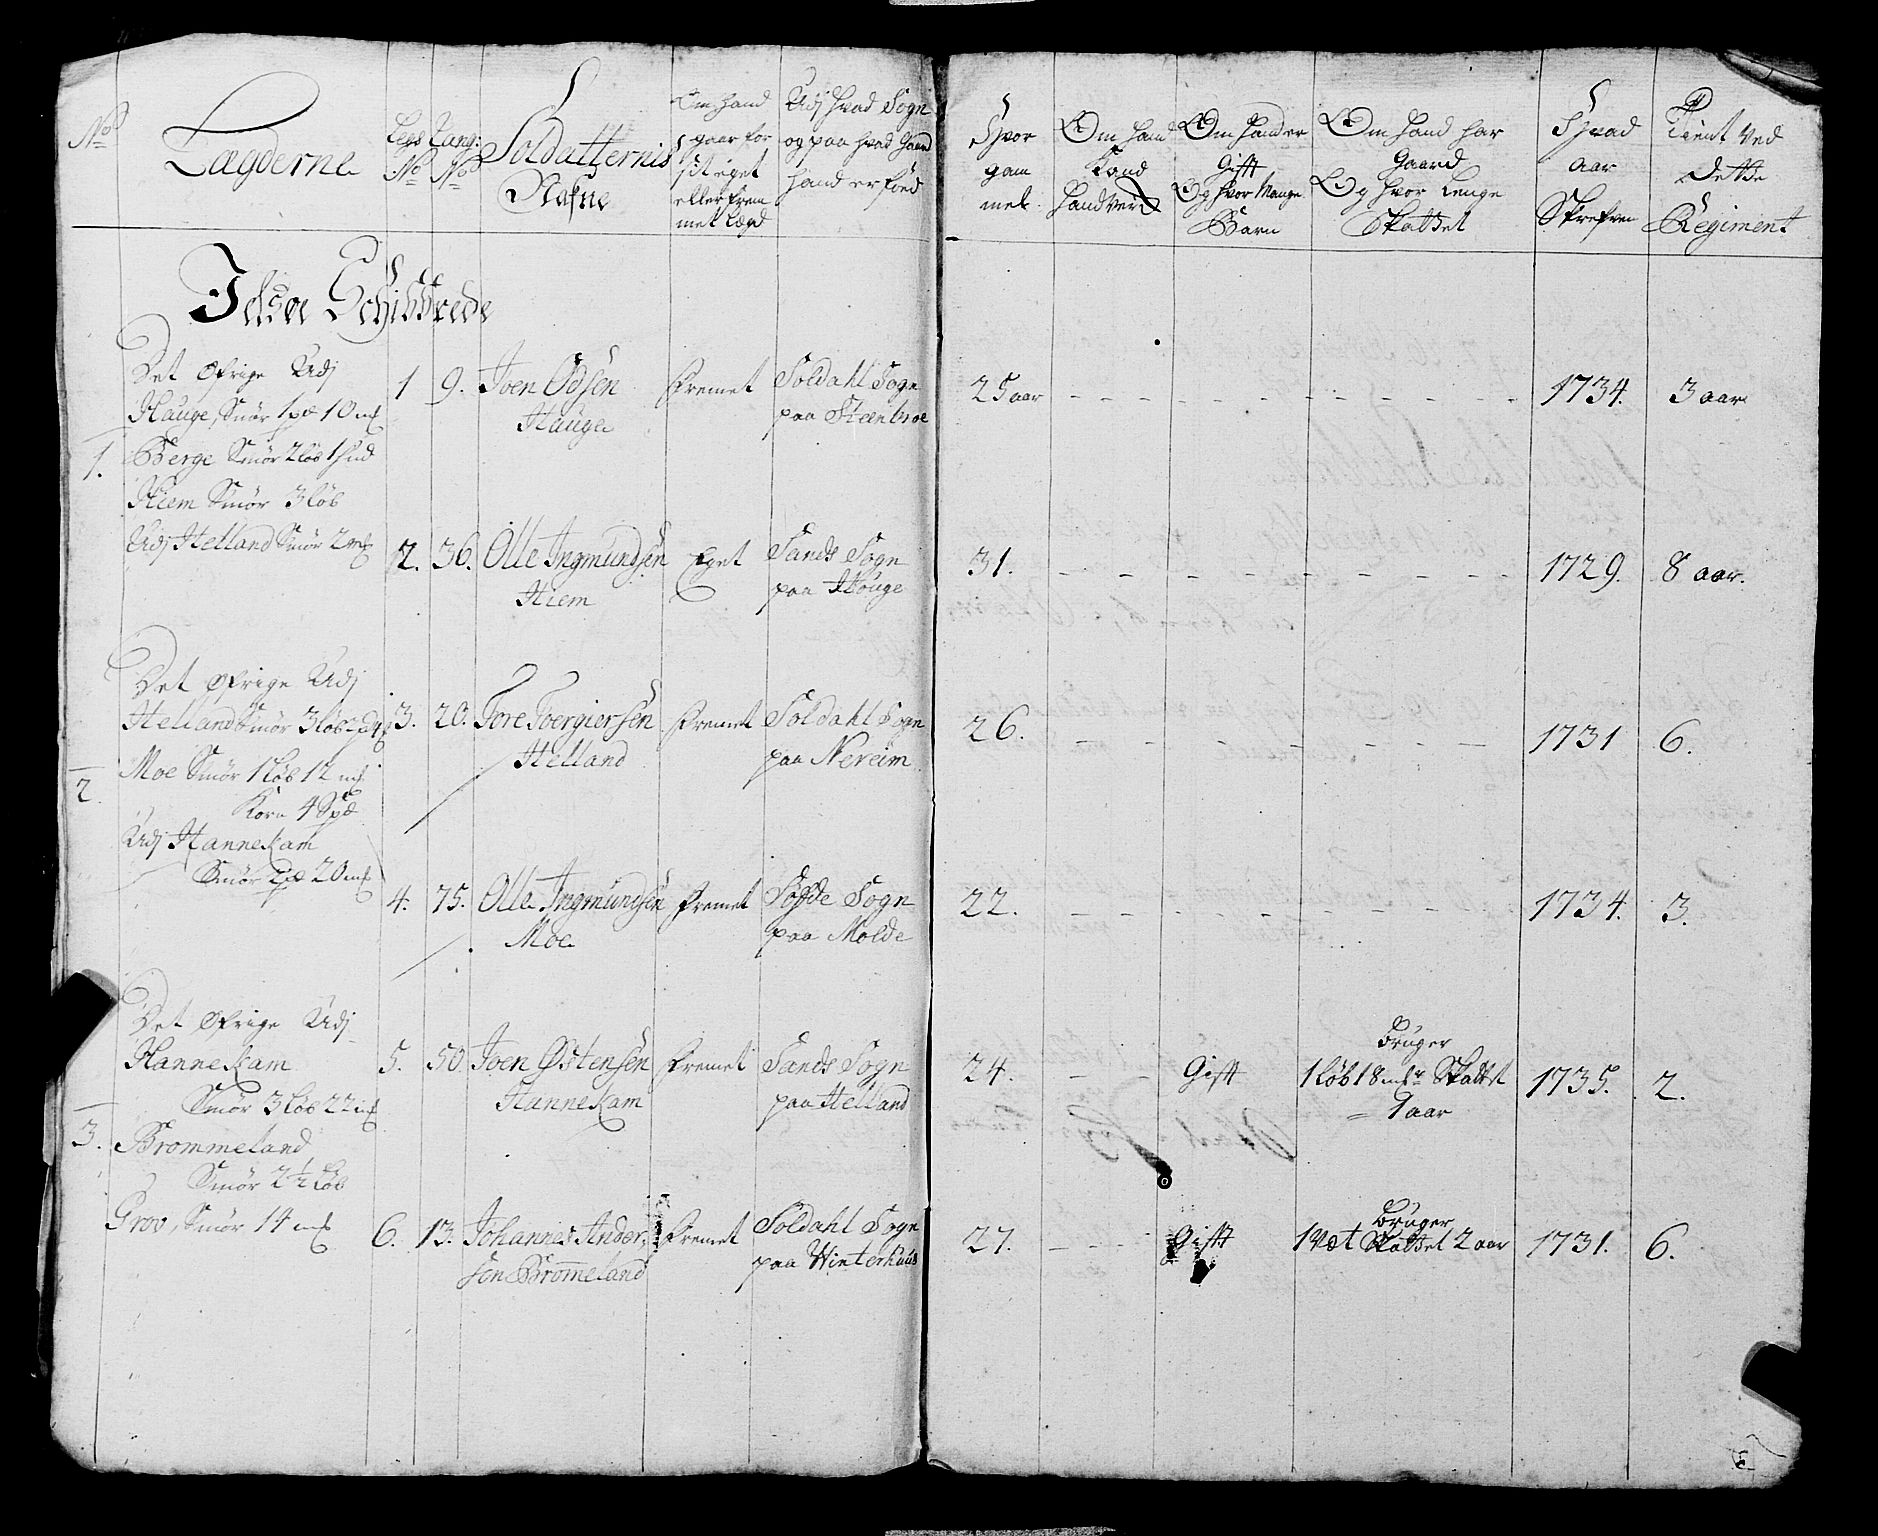 No
Lægderne
Legs No
Rang: No
Soldatternis
Nafne
Om hand
gaar for
sit eget
eller frem
met Lægd
Udj hvad Sogn
og paa hvad Gaard
hand er føed
Hvor
gam
mel
Om hand
Kand
handverk
Om hand er
Gift
Og hvor Mange
Barn
Om hand har
Gaard
Og hvor Lenge
Skattet
Hvad
aar
Skrefven
Tient ved
dette
Regiment
Jelsøe Schibbrede
1.
Det Øfrige Udj
Hauge, Smør 1 pd 10 mk
Berge Smør 2 løb 1 hud
Hiem Smør 3 løb
Udj Helland Smør 2 mk
1 9. Joen Odsen
Hauge
Fremet
Soldahl Sogn
paa Steenbroe
25 aar
1734.
3 aar
2. 36. Olle Ingmundsen
Hiem
Eget
Sands Sogn
paa Houge
31.
1729.
8 aar.
2.
Det Øfrige Udj
Helland Smør 3 løb
Moe Smør 1 løb 12 mk
Korn 4 Spd
Udj Hannekam
Smør 20 mk
3. 20. Tore Toergiersen
Helland
Fremet
Soldahl Sogn
paa Nereim
26.
1731
6.
4. 75. Olle Ingmundsen
Moe
Fremet
Sogn
paa Molde
22.
1734.
3.
3.
Det Øfrige Udj
Hannekam
Smør 3 løb 22 mk
Brommeland
Smør 2 1/2 løb
Grov, Smør 14 mk
5. 50 Joen Østensen
Hannekam
Fremet
Sands Sogn
paa Helland
24.
Gift
Bruger
1 løb 18 mkr Skattet
1 aar
1735.
2.
6. 13. Johannes Ander
sen Bromeland
Fremet
Soldahl Sogn
paa Winterhuus
27.
Gift
Bruger
1 Væt Skattet 2 aar
1731.
6.